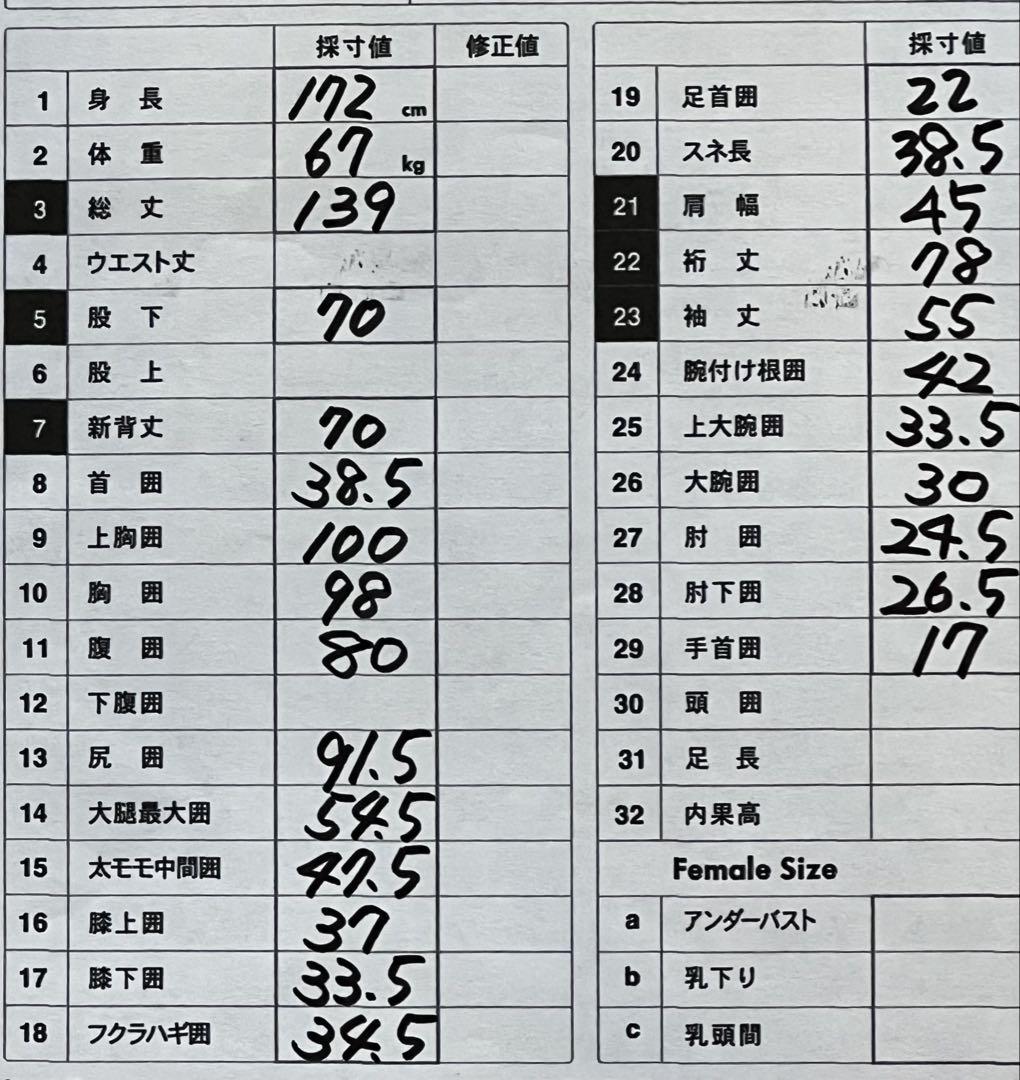 採寸値 修正値
1 身長 172 cm
2 体重 67 kg
3 総丈 139
4 ウエスト丈
5 股下 70
6 股上
7 新背丈 70
8 首囲 38.5
9 上胸囲 100
10 胸囲 98
11 腹囲 80
12 下腹囲
13 尻囲 91.5
14 大腿最大囲 54.5
15 太モモ中間囲 47.5
16 膝上囲 37
17 膝下囲 33.5
18 フクラハギ囲 34.5
採寸値
19 足首囲 22
20 スネ長 38.5
21 肩幅 45
22 裄丈 78
23 袖丈 55
24 腕付け根囲 42
25 上大腕囲 33.5
26 大腕囲 30
27 肘囲 24.5
28 肘下囲 26.5
29 手首囲 17
30 頭囲
31 足長
32 内果高
Female Size
a アンダーバスト
b 乳下り
c 乳頭間